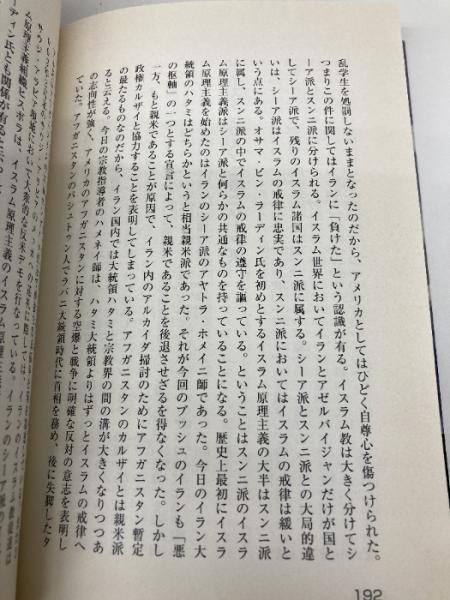 乱学生を処罰しないままとなったのだから、アメリカとしてはひどく自尊心を傷つけられた。
つまりこの件に関してはイランに「負けた」という認識が有る。イスラム教は大きく分けてシ
ーア派とスンニ派に分けられる。イスラム世界においてイランとアゼルバイジャンだけが国と
してシーア派で、残りのイスラム諸国はスンニ派に属する。シーア派とスンニ派との大局的違
いは、シーア派はイスラムの戒律に忠実であり、スンニ派においてはイスラムの戒律は緩いと
いう点にある。オサマ・ビン・ラーディン氏を初めとするイスラム原理主義の大半はスンニ派
に属し、スンニ派の中でイスラムの戒律の遵守を謳っている。ということはスンニ派のイスラ
ム原理主義派はシーア派と何らかの共通なものを持っていることになる。歴史上最初にイスラ
ム原理主義を始めたのはイランのシーア派のアヤトラ・ホメイニ師であった。今日のイラン大
統領のハタミはどちらかというと相当親米派であった。それが今回のブッシュのイランも「悪
の枢軸」の一つとする宣言によって、親米であることを後退させざるを得なくなった。しかし
一方、もと親米であることが原因で、イラン内のアルカイダ掃討のためにアフガニスタン暫定
政権カルザイと協力することを表明してしまっている。アフガニスタンのカルザイとは親米派
の最たるものなのだから、イラン国内では大統領ハタミと宗教界の間の溝が大きくなりつつあ
ると云える。今日の宗教指導者のハメネイ師は、ハタミ大統領よりはずっとイスラムの戒律へ
の志向性が強く、アメリカのアフガニスタンに対する空爆と戦争に明確な反対の意志を表明し
ていた。アフガニスタンのパシュトゥン人でラバニ大統領時代に首相を務め、後に失脚したタ
192